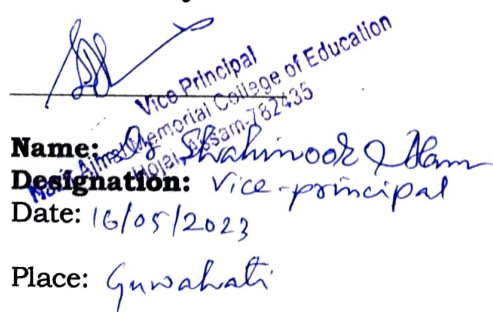 Vice Principal
Memorial College of Education
Hojai, Assam-782435
Name: Shahinoor Alam
Designation: Vice-principal
Date: 16/05/2023
Place: Guwahati